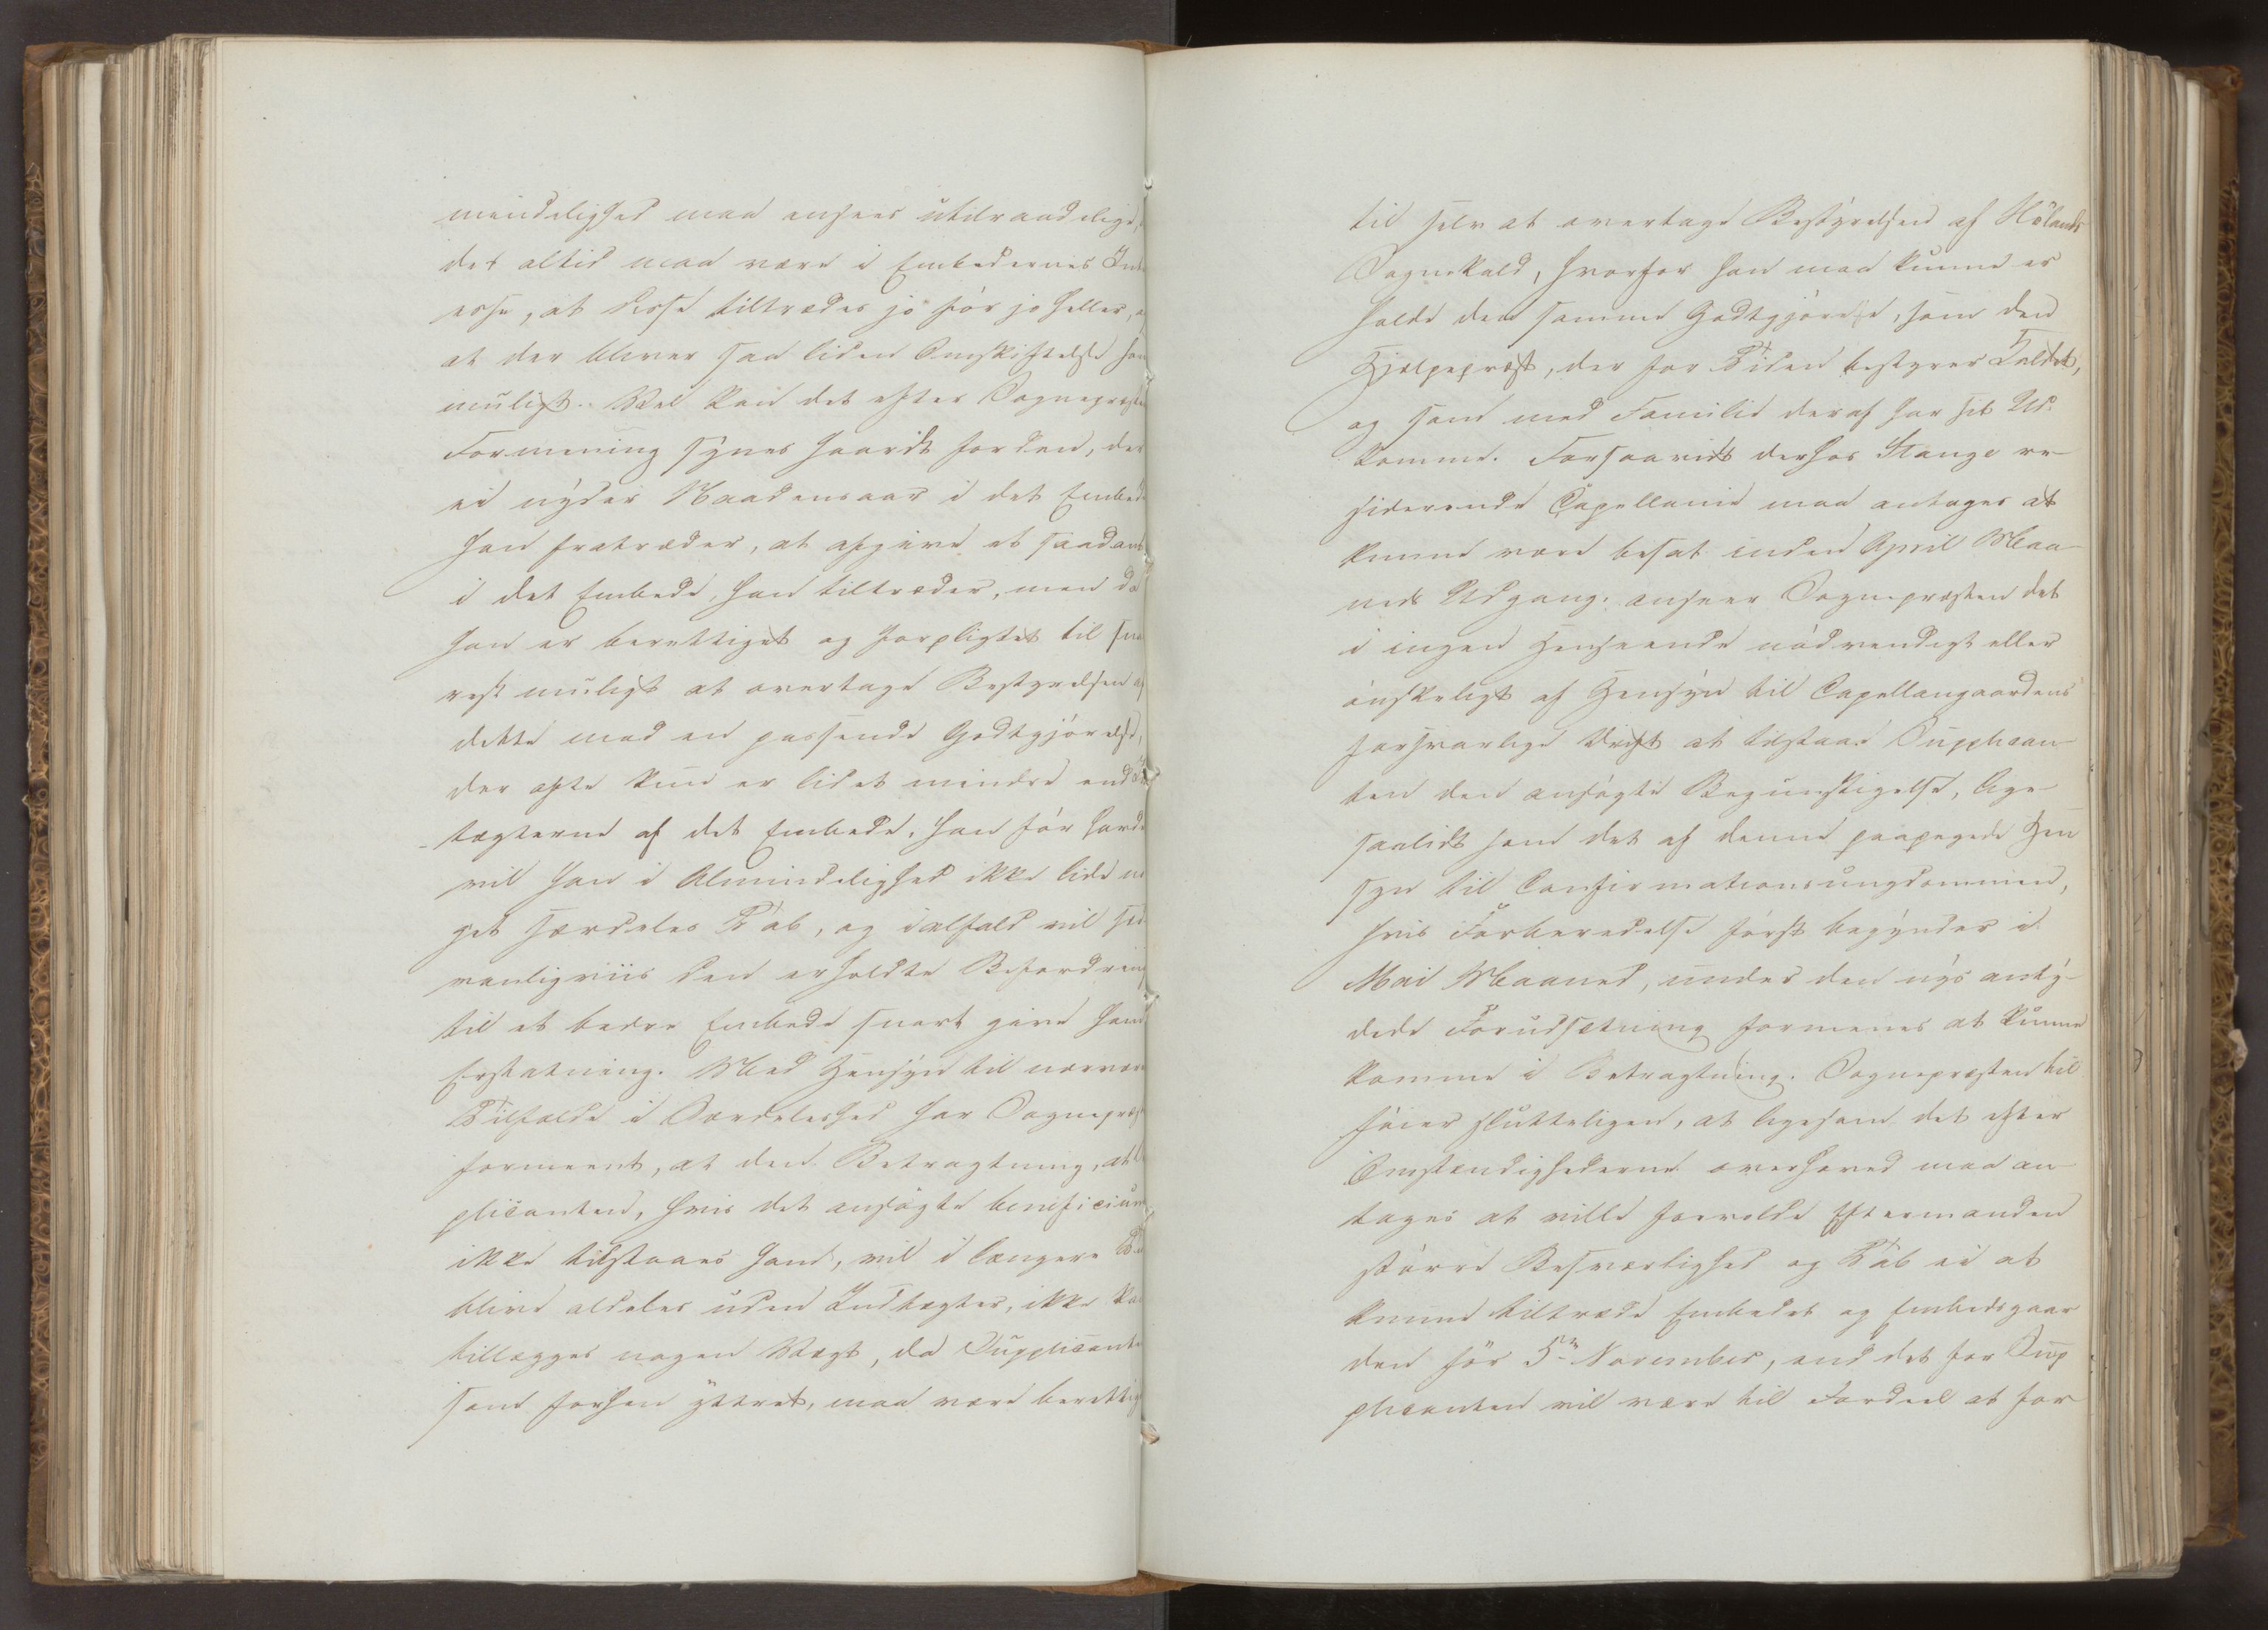 mindelighed maa ansees utilraadeligt,
det altid maa være i Embedernes Int
esse, at disse tiltrædes jo før jo heller, o
at der bliver saa liden Omskiftelse som
muligt. Vel kan det efter Sognepræste
Formening synes haardt for den, der
ei nyder Naadensaar i det Embede
han fratræder, at afgive et saadant
i det Embede, han tiltræder, men da
han er berettiget og forpligtet til sna
rest muligt at overtage Bestyrelsen af
dette mod en passende Godtgjørelse,
der ofte kun er lidet mindre end In
tægterne af det Embede, han før havde
vil han i Almindelighed ikke lide no
get særdeles Tab, og ialfald vil sæd
vanligviis den erholdte Befordring
til et bedre Embede snart give ham
Erstatning. Med Hensyn til nærvær
Tilfælde i Særdeleshed har Sognepræst
formeent, at den Betragtning, at
plicanten, hvis det ansøgte beneficium
ikke tilstaaes ham, vil i længere Ti
blive aldeles uden Indtægter, ikke ka
tillægges nogen Vægt, da Supplicante
som forhen yttret, maa være berettig
til selv at overtage Bestyrelsen af Hølands
Sognekald, hvorfor han maa kunne er
holde den samme Godtgjørelse, som den
Hjælpepræst, der for Tiden bestyrer Kaldet,
og som med Familie deraf har sit Ud-
komme. Forsaavidt derhos Stange re-
siderende Capellanie maa antages at
kunne være besat inden April Maa-
neds Udgang, anseer Sognepræsten det
i ingen Henseende nødvendigt eller
ønskeligt af Hensyn til Capellangaardens
forsvarlige Drift at tilstaae Supplican-
ten den ansøgte Begunstigelse, lige-
saalidt som det af denne paapegede Hen
syn til Confirmationsungdommen,
hvis Forberedelse først begynder i
Mai Maaned, under den nys anty-
dede Forudsætning formenes at kunne
komme i Betragtning. Sognepræsten til
føier slutteligen, at ligesom det efter
Omstændighederne overhoved maa an-
tages at ville forvolde Eftermanden
større Besværlighed og Tab ei at
kunne tiltræde Embedet og Embedsgaar
den før 5te November, end det for Sup
plicanten vil være til Fordeel at for